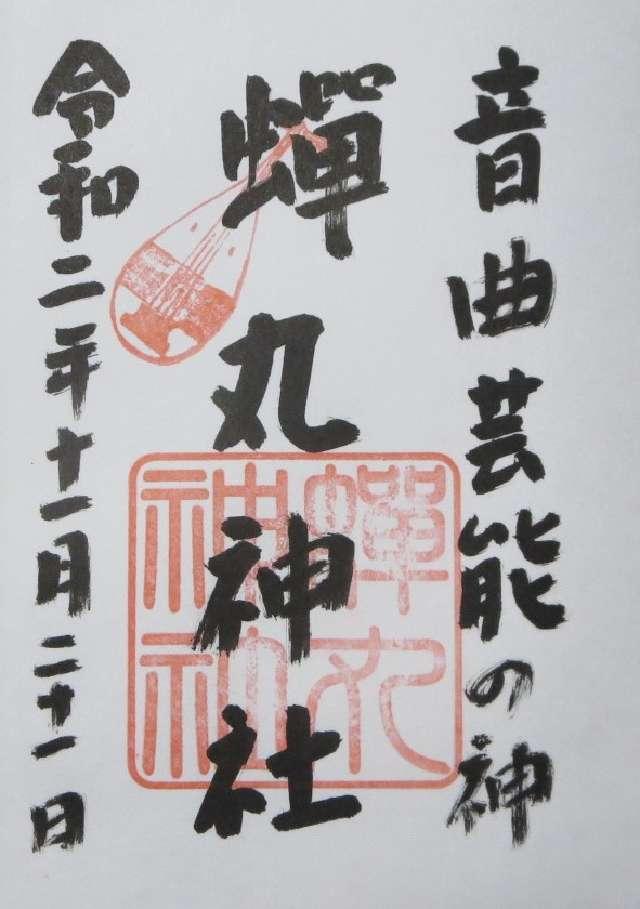 音曲芸能の神
蟬丸神社
令和二年十一月二十一日
蟬丸
神社